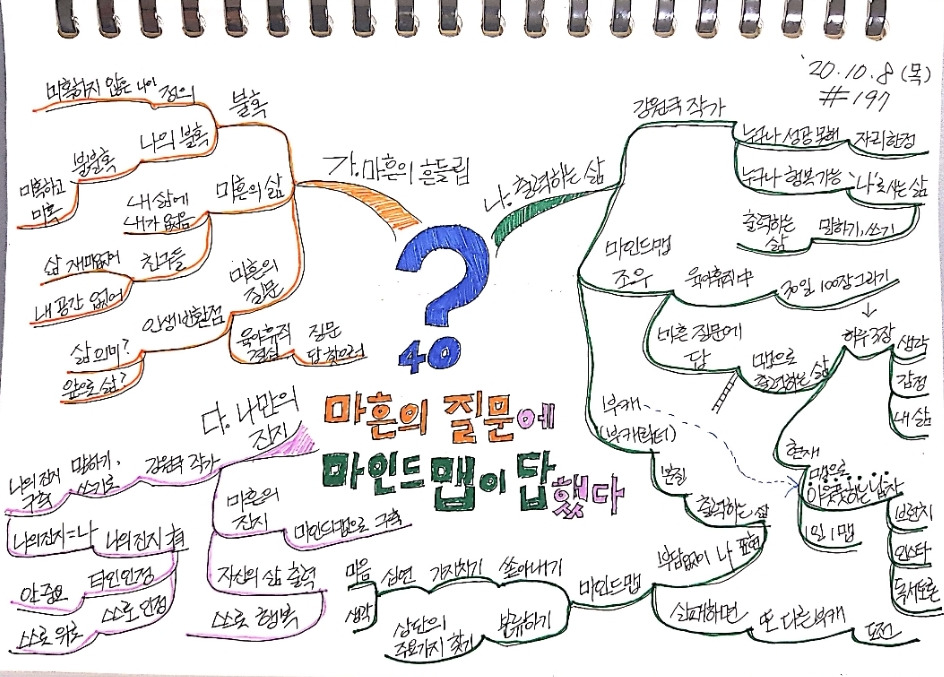 '20.10.8 (목)
#197
?
40
마흔의 질문에
마인드맵이 답했다
가. 마흔의 흔들림
불혹
정의
미혹하지 않은 나이
나의 불혹
불불혹
미혹하고
미혹
마흔의 삶
내 삶에
내가 없음
친구들
삶 재미없어
내 공간 없어
마흔의
질문
인생 반환점
삶 의미?
앞으로 삶?
육아휴직
결심
질문
답 찾으러
나. 출력하는 삶
강원국 작가
누구나 성공 못해
자리 한정
누구나 행복 가능
'나'로 사는 삶
말하기, 쓰기
출력하는
삶
마인드맵
조우
육아휴직 中
30일 100장 그리기
↓
하루 3장
생각
감정
내 삶
마흔 질문에
답
맵으로
출력하는 삶
현재
맵으로
아웃풋하는 남자
브런치
인스타
독서토론
1일 1맵
부캐
(부캐릭터)
본질
출력하는 삶
부담없이 나 표현
마인드맵
쏟아내기
가지치기
심연
마음
생각
분류하기
상단의
주요가지 찾기
실패하면
또 다른 부캐
도전
다. 나만의
진지
강원국 작가
말하기,
쓰기로
나의 진지
구축
나의 진지=나
나의 진지 有
타인 인정
안 중요
스스로 인정
스스로 위로
마흔의
진지
마인드맵으로 구축
자신의 삶 출력
스스로 행복